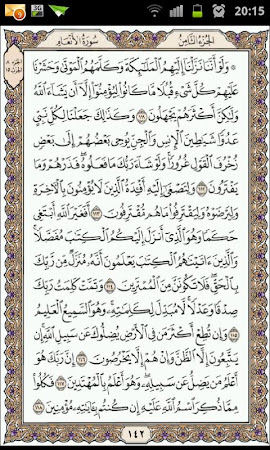 20:15
الجزء الثامن
سورة الأنعام
۞ وَلَوْ أَنَّنَا نَزَّلْنَا إِلَيْهِمُ الْمَلَائِكَةَ وَكَلَّمَهُمُ الْمَوْتَىٰ وَحَشَرْنَا
عَلَيْهِمْ كُلَّ شَيْءٍ قُبُلًا مَّا كَانُوا لِيُؤْمِنُوا إِلَّا أَن يَشَاءَ اللَّهُ
وَلَٰكِنَّ أَكْثَرَهُمْ يَجْهَلُونَ ١١١ وَكَذَٰلِكَ جَعَلْنَا لِكُلِّ نَبِيٍّ
عَدُوًّا شَيَاطِينَ الْإِنسِ وَالْجِنِّ يُوحِي بَعْضُهُمْ إِلَىٰ بَعْضٍ
زُخْرُفَ الْقَوْلِ غُرُورًا وَلَوْ شَاءَ رَبُّكَ مَا فَعَلُوهُ فَذَرْهُمْ وَمَا
يَفْتَرُونَ ١١٢ وَلِتَصْغَىٰ إِلَيْهِ أَفْئِدَةُ الَّذِينَ لَا يُؤْمِنُونَ بِالْآخِرَةِ
وَلِيَرْضَوْهُ وَلِيَقْتَرِفُوا مَا هُم مُّقْتَرِفُونَ ١١٣ أَفَغَيْرَ اللَّهِ أَبْتَغِي
حَكَمًا وَهُوَ الَّذِي أَنزَلَ إِلَيْكُمُ الْكِتَابَ مُفَصَّلًا
وَالَّذِينَ آتَيْنَاهُمُ الْكِتَابَ يَعْلَمُونَ أَنَّهُ مُنَزَّلٌ مِّن رَّبِّكَ
بِالْحَقِّ فَلَا تَكُونَنَّ مِنَ الْمُمْتَرِينَ ١١٤ وَتَمَّتْ كَلِمَتُ رَبِّكَ
صِدْقًا وَعَدْلًا لَّا مُبَدِّلَ لِكَلِمَاتِهِ وَهُوَ السَّمِيعُ الْعَلِيمُ
١١٥ وَإِن تُطِعْ أَكْثَرَ مَن فِي الْأَرْضِ يُضِلُّوكَ عَن سَبِيلِ اللَّهِ
إِن يَتَّبِعُونَ إِلَّا الظَّنَّ وَإِنْ هُمْ إِلَّا يَخْرُصُونَ ١١٦ إِنَّ رَبَّكَ هُوَ
أَعْلَمُ مَن يَضِلُّ عَن سَبِيلِهِ وَهُوَ أَعْلَمُ بِالْمُهْتَدِينَ ١١٧ فَكُلُوا
مِمَّا ذُكِرَ اسْمُ اللَّهِ عَلَيْهِ إِن كُنتُم بِآيَاتِهِ مُؤْمِنِينَ ١١٨
١٤٢